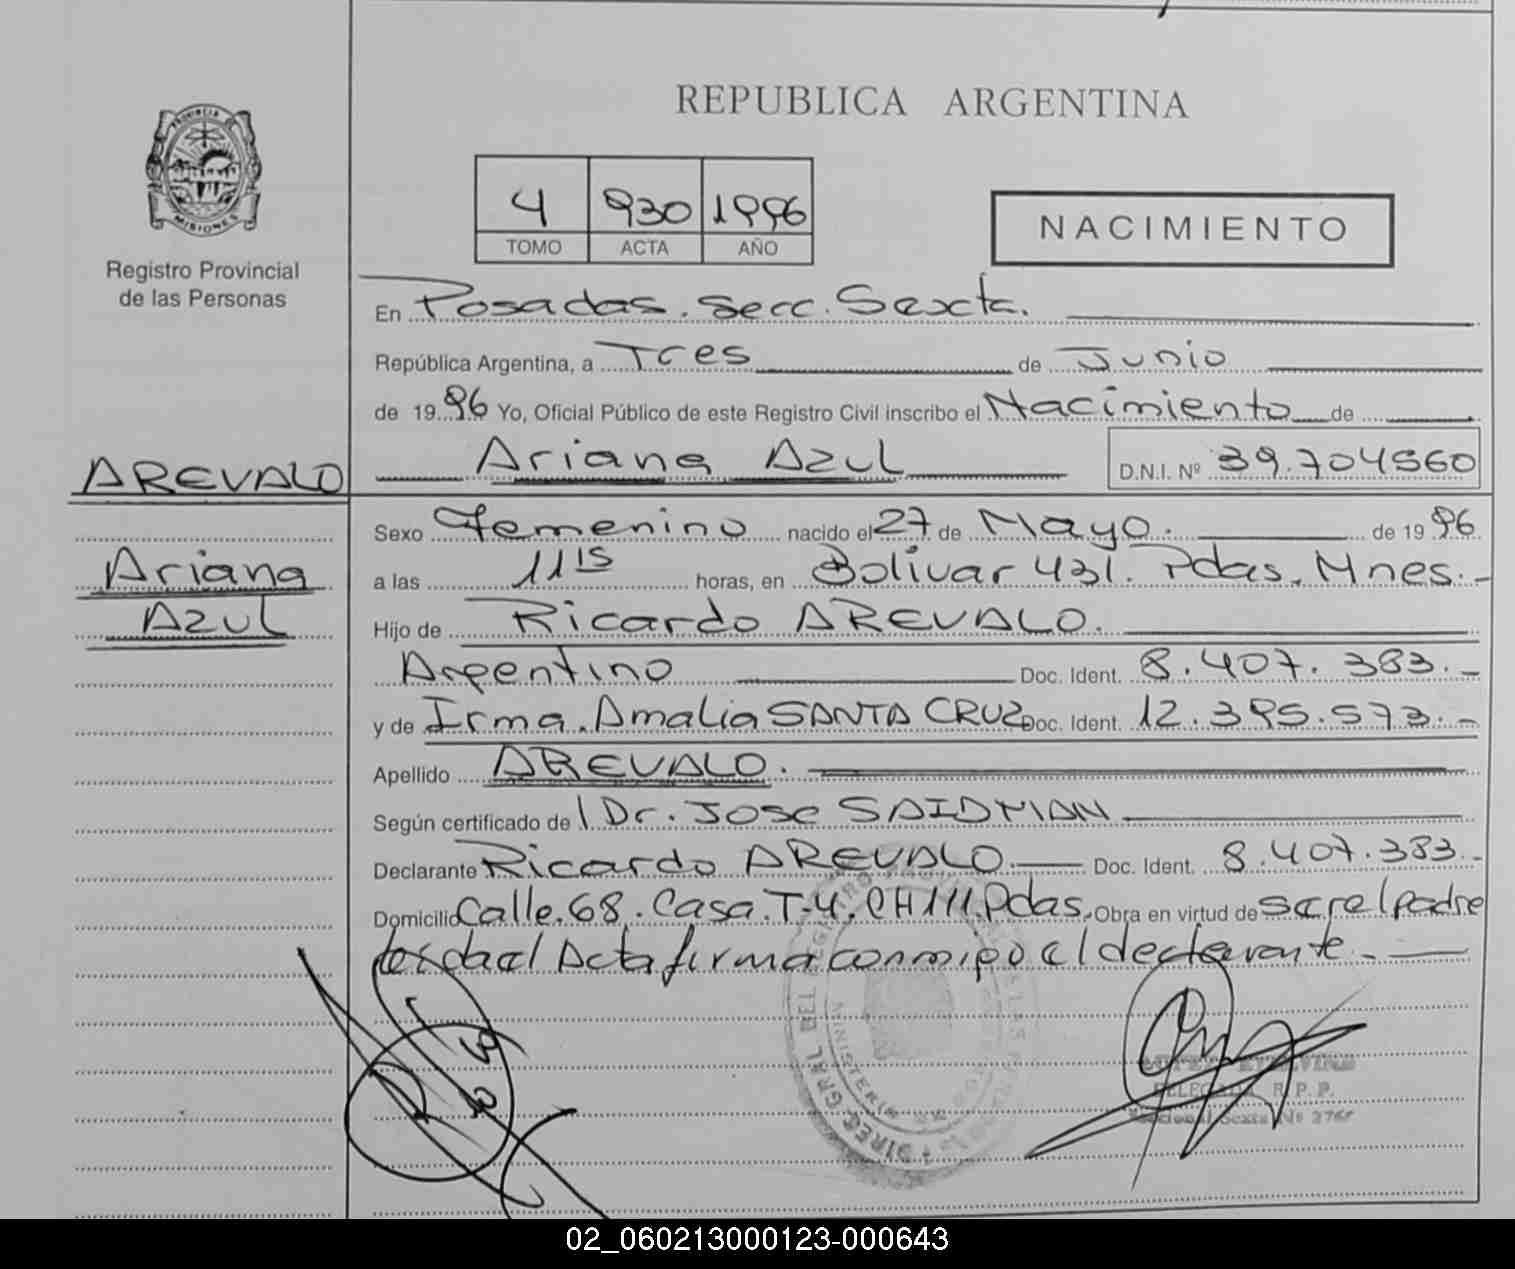 REPUBLICA ARGENTINA
PROVINCIA DE
MISIONES
Registro Provincial
de las Personas
4 930 1996
TOMO ACTA AÑO
NACIMIENTO
En Posadas. Secc. Sexta.
República Argentina, a Tres de Junio
de 1996 Yo, Oficial Público de este Registro Civil inscribo el Nacimiento de
AREVALO
Ariana Azul D.N.I. Nº 39.704560
Sexo Femenino nacido el 27 de Mayo. de 1996
Ariana
a las 11 15 horas, en Bolívar 431. Pdas. Mnes.-
Azul
Hijo de Ricardo AREVALO.
Argentino Doc. Ident. 8.407.383.-
y de Irma. Amalia SANTA CRUZ Doc. Ident. 12.395.573.-
Apellido AREVALO.
Según certificado de Dr. Jose SAIDMAN
Declarante Ricardo AREVALO. Doc. Ident. 8.407.383.-
Domicilio Calle. 68. Casa. T-4. CH 111. Pdas. Obra en virtud de ser el padre
Acta firma conmigo el declarante.-
DELEGADA R.P.P.
Seccional Sexta Nº
02_060213000123-000643